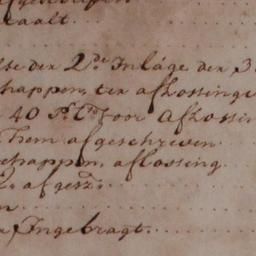 taalt.
der 2de Inlage der 3
happen, ter aflossinge
40 P.Ct. voor Aflossin
hem afgeschreven
schappen, aflossing
afgesz.
n
Ingebragt.